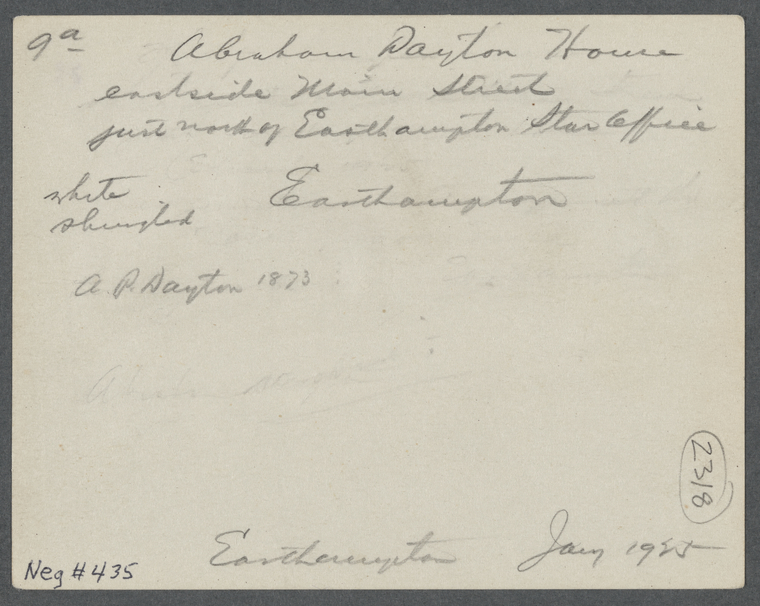 9a Abraham Dayton House
eastside Main Street
just north of Easthampton Star Office
white
shingled
Easthampton
A. P. Dayton 1873
2318
Easthampton Jany 1925
Neg # 435